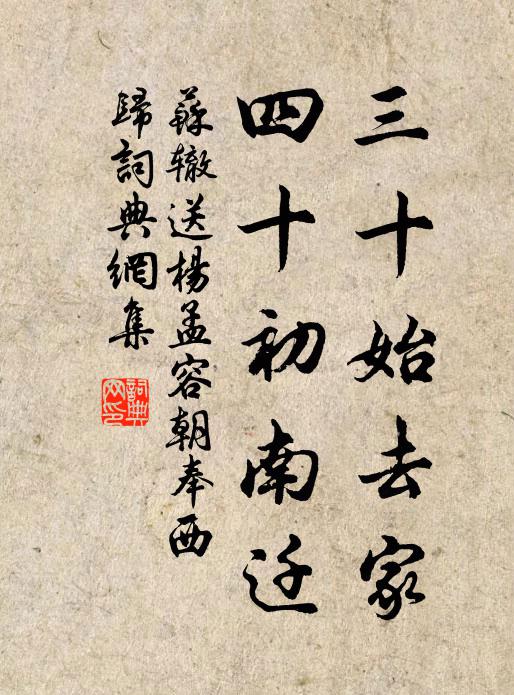 三十始去家
四十初南迁
蘇辙送楊孟容朝奉西
歸詞典網集
詞典
网印